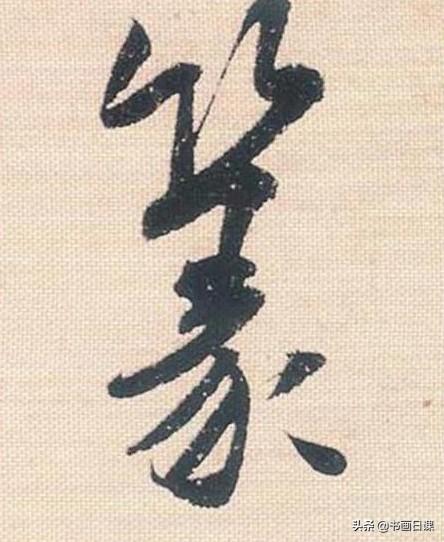 篆
头条 @书画日课